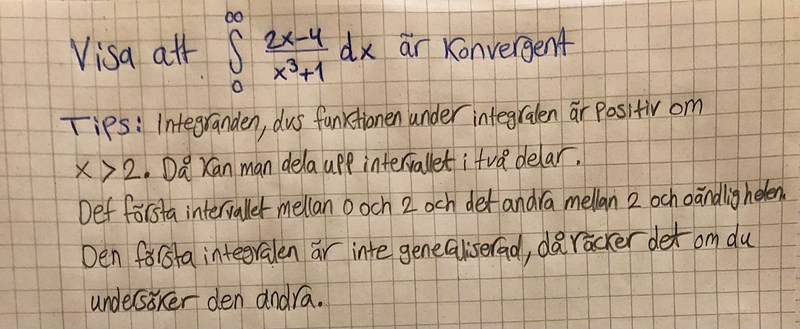 Visa att ∫₀^∞ (2x-4)/(x³+1) dx är konvergent
Tips: Integranden, dvs funktionen under integralen är positiv om
x > 2. Då kan man dela upp intervallet i två delar.
Det första intervallet mellan 0 och 2 och det andra mellan 2 och oändligheten.
Den första integralen är inte genealiserad, då räcker det om du
undersöker den andra.